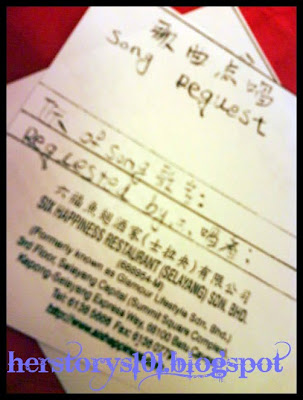 歌曲点唱
Song Request
Title of Song 歌名:
Requested by 点唱者:
六福魚翅酒家(士拉央)有限公司
SIX HAPPINESS RESTAURANT (SELAYANG) SDN. BHD.
(Formerly known as Glamour Lifestyle Sdn. Bhd.)
3rd Floor, Selayang Capitol (Summit Square Complex)
Kepong-Selayang Express Way, 68100
Tel: 6136 Fax: 6136
herstorys101.blogspot